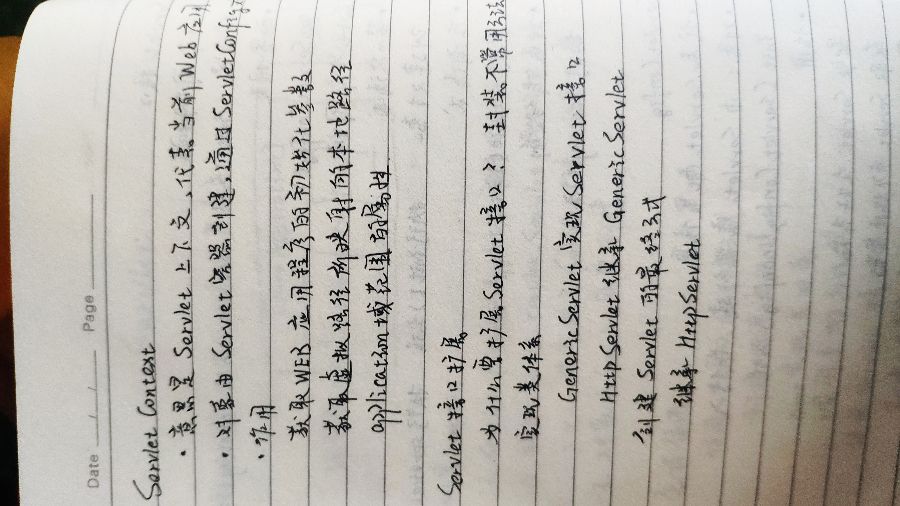 Date / / Page
Servlet Context
· 意思是 Servlet 上下文,代表当前Web应用
· 对象由 Servlet 容器创建,通过 ServletConfig
· 作用
获取WEB应用程序的初始化参数
获取虚拟路径所映射的本地路径
application域范围的属性
Servlet 接口扩展
为什么要扩展Servlet接口? 封装不常用方法
实现类体系
GenericServlet 实现 Servlet 接口
HttpServlet 继承 GenericServlet
创建 Servlet 的最终方式
继承 HttpServlet